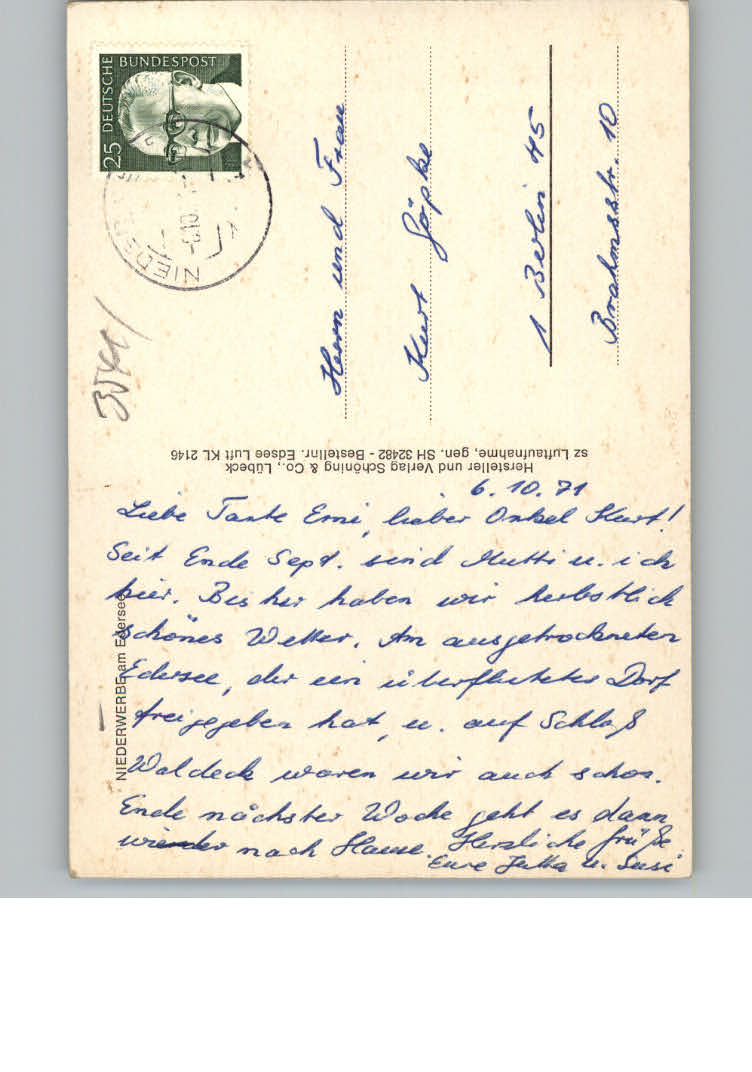 25 DEUTSCHE BUNDESPOST
NIEDER
-6.10.
3541
Herrn und Frau
Kurt Göpke
1 Berlin 45
Brahmsstr. 10
Hersteller und Verlag Schöning & Co., Lübeck
sz Luftaufnahme, gen. SH 32482 - Bestellnr. Edsee Luft KL 2146
NIEDERWERBE am Edersee
6.10.71
Liebe Tante Erni, lieber Onkel Kurt!
Seit Ende Sept. sind Mutti u. ich
hier. Bisher haben wir herbstlich
schönes Wetter. Am ausgetrockneten
Edersee, der ein überflutetes Dorf
freigegeben hat, u. auf Schloß
Waldeck waren wir auch schon.
Ende nächster Woche geht es dann
wieder nach Hause. Herzliche Grüße
Eure Jutta u. Susi